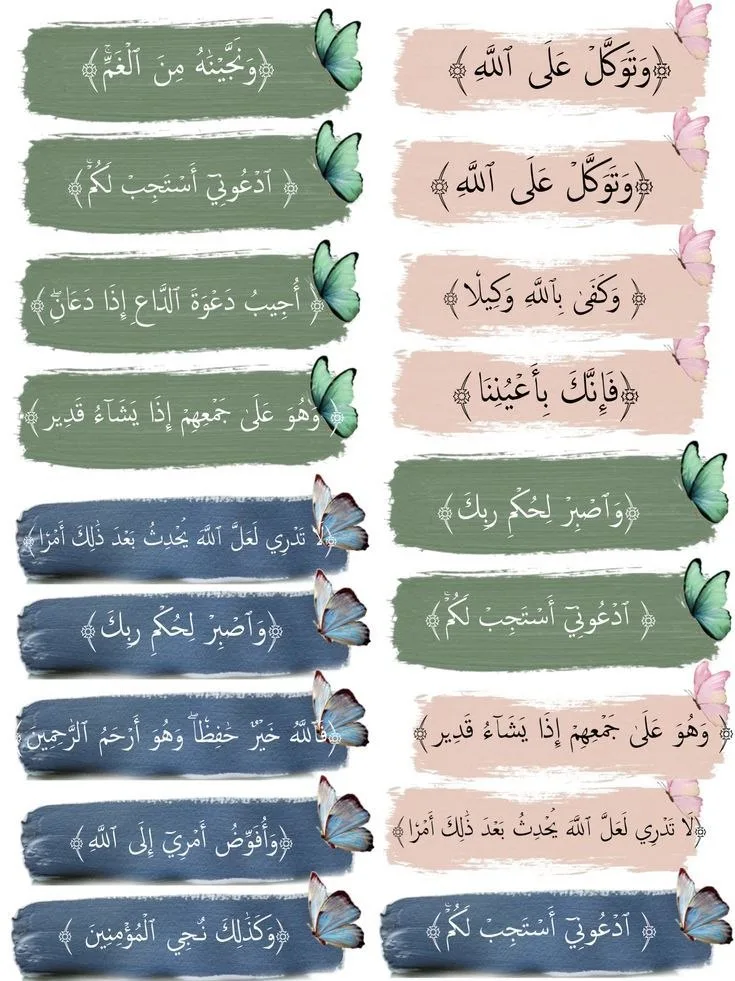 ﴿وَتَوَكَّلْ عَلَى ٱللَّهِ﴾
﴿وَتَوَكَّلْ عَلَى ٱللَّهِ﴾
﴿وَكَفَىٰ بِٱللَّهِ وَكِيلًا﴾
﴿فَإِنَّكَ بِأَعْيُنِنَا﴾
﴿وَٱصْبِرْ لِحُكْمِ رَبِكَ﴾
﴿ٱدْعُونِيٓ أَسْتَجِبْ لَكُمْۚ﴾
﴿وَهُوَ عَلَىٰ جَمْعِهِمْ إِذَا يَشَآءُ قَدِير﴾
﴿لَا تَدْرِي لَعَلَّ ٱللَّهَ يُحْدِثُ بَعْدَ ذَٰلِكَ أَمْرًا﴾
﴿ٱدْعُونِيٓ أَسْتَجِبْ لَكُمْۚ﴾
﴿وَنَجَّيْنَٰهُ مِنَ ٱلْغَمِّۚ﴾
﴿ٱدْعُونِيٓ أَسْتَجِبْ لَكُمْۚ﴾
﴿أُجِيبُ دَعْوَةَ ٱلدَّاعِ إِذَا دَعَانِۖ﴾
﴿وَهُوَ عَلَىٰ جَمْعِهِمْ إِذَا يَشَآءُ قَدِير﴾
﴿لَا تَدْرِي لَعَلَّ ٱللَّهَ يُحْدِثُ بَعْدَ ذَٰلِكَ أَمْرًا﴾
﴿وَٱصْبِرْ لِحُكْمِ رَبِكَ﴾
﴿فَٱللَّهُ خَيْرٌ حَٰفِظًاۖ وَهُوَ أَرْحَمُ ٱلرَّٰحِمِينَ﴾
﴿وَأُفَوِّضُ أَمْرِيٓ إِلَى ٱللَّهِ﴾
﴿وَكَذَٰلِكَ نُـجِي ٱلْمُؤْمِنِينَ﴾